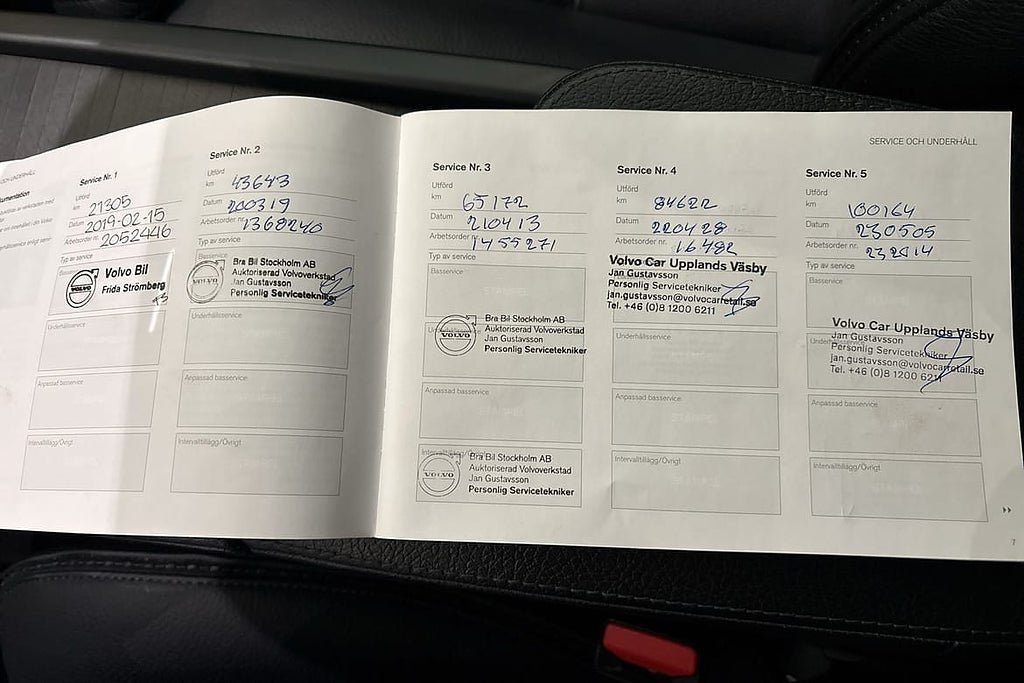 OCH UNDERHÅLL
Service Nr. 1
Utförd
km 21305
Datum 2019-02-15
Arbetsorder nr. 2052446
Typ av service
Volvo Bil
Frida Strömberg
VOLVO
Underhållsservice
Anpassad basservice
Intervalltillägg/Övrigt
Service Nr. 2
Utförd
km 43643
Datum 200319
Arbetsorder nr. 1368240
Typ av service
Basservice
Bra Bil Stockholm AB
Auktoriserad Volvoverkstad
Jan Gustavsson
Personlig Servicetekniker
VOLVO
Underhållsservice
Anpassad basservice
Intervalltillägg/Övrigt
SERVICE OCH UNDERHÅLL
Service Nr. 3
Utförd
km 65172
Datum 210413
Arbetsorder nr. 1455271
Typ av service
Basservice
Bra Bil Stockholm AB
Auktoriserad Volvoverkstad
Jan Gustavsson
Personlig Servicetekniker
VOLVO
Anpassad basservice
Intervalltillägg/Övrigt
Bra Bil Stockholm AB
Auktoriserad Volvoverkstad
Jan Gustavsson
Personlig Servicetekniker
VOLVO
Service Nr. 4
Utförd
km 84622
Datum 220428
Arbetsorder nr. 16482
Volvo Car Upplands Väsby
Jan Gustavsson
Personlig Servicetekniker
jan.gustavsson@volvocarretail.se
Tel. +46 (0)8 1200 6211
Underhållsservice
Anpassad basservice
Intervalltillägg/Övrigt
Service Nr. 5
Utförd
km 100164
Datum 230505
Arbetsorder nr. 232914
Typ av service
Basservice
Volvo Car Upplands Väsby
Jan Gustavsson
Personlig Servicetekniker
jan.gustavsson@volvocarretail.se
Tel. +46 (0)8 1200 6211
Anpassad basservice
Intervalltillägg/Övrigt
7